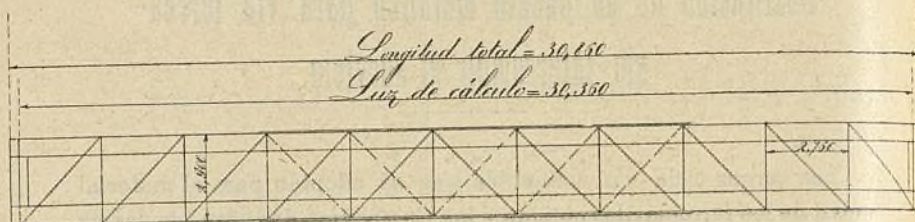 Longitud total = 30,260
Luz de cálculo = 30,360
2,750